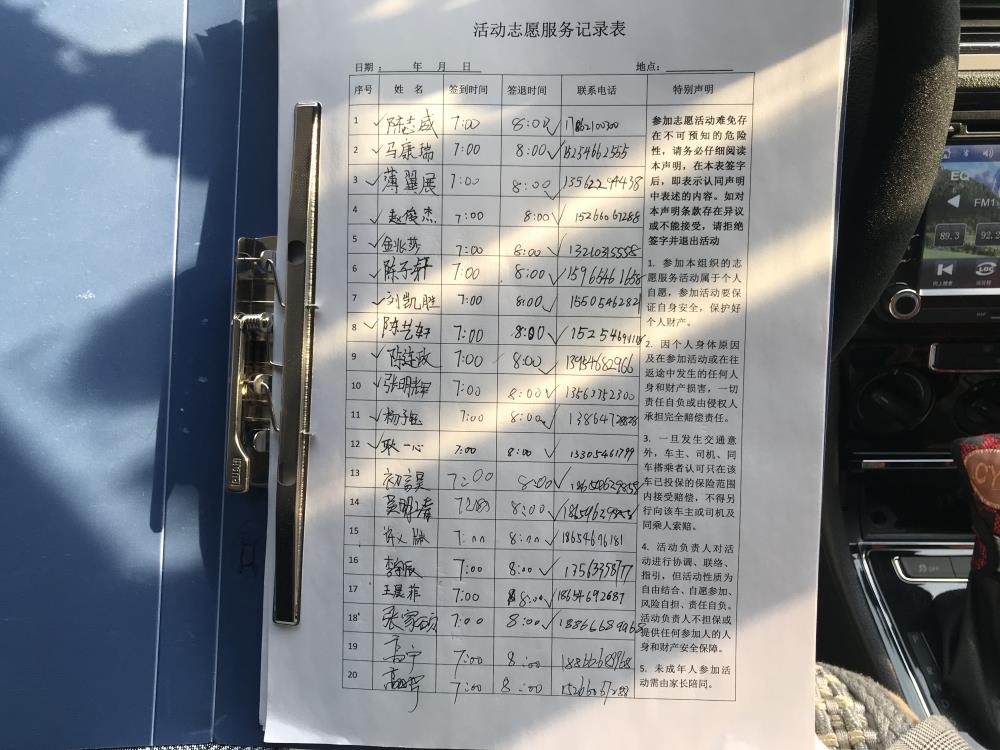 活动志愿服务记录表
日期： 年 月 日 地点：
序号 姓 名 签到时间 签退时间 联系电话 特别声明
1 陈志盛 7:00 8:00
2 马康瑞 7:00 8:00 15254662555
3 薄翼展 7:00 8:00 13562294438
4 赵俊杰 7:00 8:00 15266067288
5 7:00 8:00 13210315558
6 7:00 8:00
7 刘凯胜 7:00 8:00 15505462821
8 陈艺轩 7:00 8:00
9 7:00 8:00
10 张明辉 7:00 8:00 13563352300
11 7:00 8:00 13864728828
12 耿一心 7:00 8:00 13305461799
13 7:00 8:00
14 8:00
15 7:00 8:00 18654696181
16 7:00 8:00
17 王晨菲 7:00 8:00 18654692687
18 张家硕 7:00 8:00
19 高宁 7:00 8:00
20 7:00 8:00
参加志愿活动难免存
在不可预知的危险
性，请务必仔细阅读
本声明，在本表签字
后，即表示认同声明
中表述的内容。如对
本声明条款存在异议
或不能接受，请拒绝
签字并退出活动
1. 参加本组织的志
愿服务活动属于个人
自愿，参加活动要保
证自身安全，保护好
个人财产。
2. 因个人身体原因
及在参加活动或在往
返途中发生的任何人
身和财产损害，一切
责任自负或由侵权人
承担完全赔偿责任。
3. 一旦发生交通意
外，车主、司机、同
车搭乘者认可只在该
车已投保的保险范围
内接受赔偿，不得另
行向该车主或司机及
同乘人索赔。
4. 活动负责人对活
动进行协调、联络、
指引，但活动性质为
自由结合、自愿参加、
风险自担、责任自负。
活动负责人不担保或
提供任何参加人的人
身和财产安全保障。
5. 未成年人参加活
动需由家长陪同。
EQ
FM1
89.3 92.2